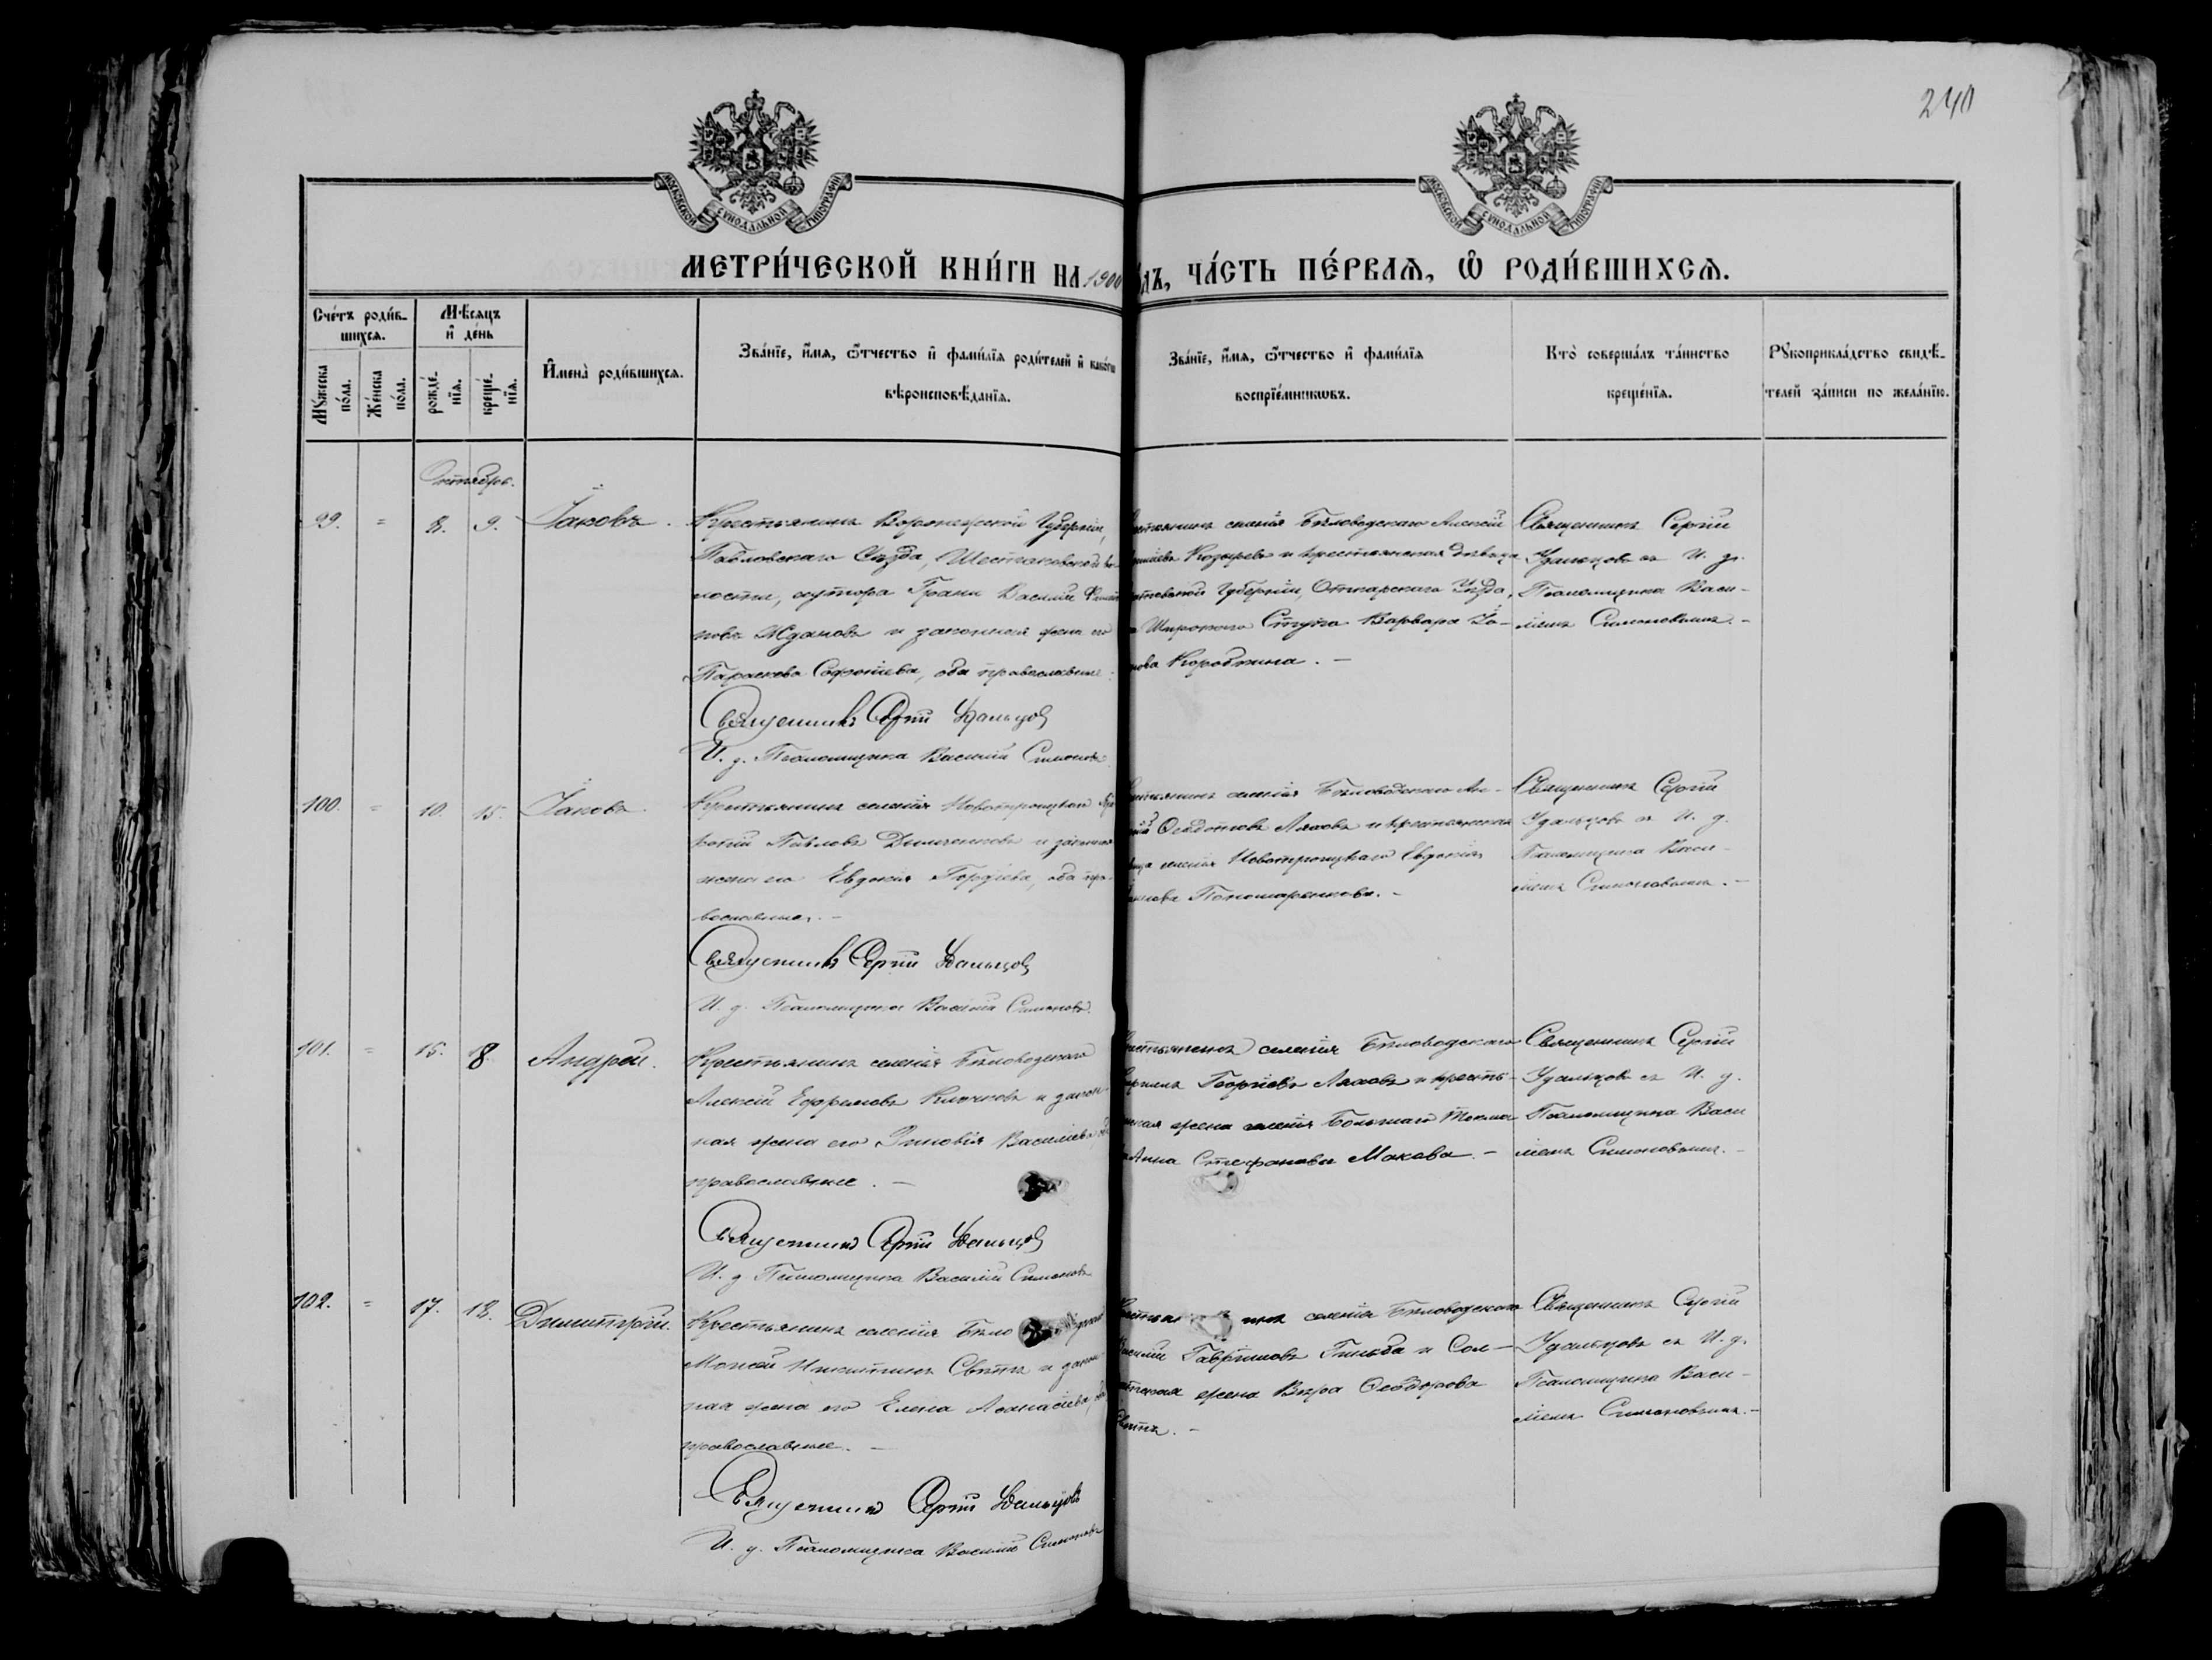 240
МОСКОВСКОЙ СѴНОДАЛЬНОЙ ТИПОГРАФІИ
МОСКОВСКОЙ СѴНОДАЛЬНОЙ ТИПОГРАФІИ
МЕТРИ́ЧЕСКОЙ КНИ́ГИ НА 1900 ДЪ, ЧА́СТЬ ПЕ́РВАѦ, Ѡ҆ РОДИ́ВШИХСѦ.
Сче́тъ роди́в-
шихсѧ.
Мꙋ́жеска по́ла.
Же́нска по́ла.
Мѣ́сѧцъ
и҆ де́нь
рожде́-
нїѧ.
креще́-
нїѧ.
И҆мена̀ роди́вшихсѧ.
Зва́нїе, и҆́мѧ, ѻ҆́тчество и҆ фами́лїѧ роди́телей и҆ како́гѡ
вѣроисповѣ́данїѧ.
Зва́нїе, и҆́мѧ, ѻ҆́тчество и҆ фами́лїѧ
воспрїе́мникѡвъ.
Кто̀ соверша́лъ та́инство
креще́нїѧ.
Рꙋкоприкла́дство свидѣ́-
телей за́писи по жела́нїю.
Октябрь.
99. = 8. 9. Іаковъ.
Крестьянинъ Воронежской Губерніи,
Павловскаго Уѣзда, Шестаковской во-
лости, хутора Грани Василій
новъ Ждановъ и законная жена его
Параскева Софоніева, оба православные.
Священникъ Сергій Удальцовъ
И. д. Псаломщика Василій Симоновъ
селенія Бѣловодскаго Алексій
Козыревъ и крестьянская дѣвица
Губерніи, Аткарскаго Уѣзда,
Широкаго Ступа Варвара Іа-
кова Коробкина. –
Священникъ Сергій
Удальцовъ съ И. д.
Псаломщика Васи-
ліемъ Симоновымъ. –
100. = 10. 15. Іаковъ.
Крестьянинъ селенія Новотроицкаго
Павловъ Дымченковъ и законная
жена его Евдокія Гордіева, оба пра-
вославные. –
Священникъ Сергій Удальцовъ
И. д. Псаломщика Василій Симоновъ.
селенія Бѣловодскаго
Ѳеодотовъ Ляховъ и крестьянская
селенія Новотроицкаго Евдокія
Пономаренкова. –
Священникъ Сергій
Удальцовъ съ И. д.
Псаломщика Васи-
ліемъ Симоновымъ. –
101. = 15. 18. Андрей.
Крестьянинъ селенія Бѣловодскаго
Алексій Ефремовъ Клочковъ и закон-
ная жена его Зиновія Васильева, оба
православные. –
Священникъ Сергій Удальцовъ
И. д. Псаломщика Василій Симоновъ
селенія Бѣловодскаго
Георгіевъ Ляховъ и кресть-
янская жена селенія Большаго Токма-
ка Анна Стефанова Макова. –
Священникъ Сергій
Удальцовъ съ И. д.
Псаломщика Васи
ліемъ Симоновымъ. –
102. = 17. 18. Димитрій.
Крестьянинъ селенія Бѣло
Моисей Никитинъ Свѣтъ и закон-
ная жена его Елена Аѳанасіева, оба
православные. –
Священникъ Сергій Удальцовъ
И. д. Псаломщика Василій Симоновъ
селенія Бѣловодскаго
Василій Гавріиловъ Гиньба и Сол-
датская жена Вѣра Ѳеодорова
Свѣтъ. –
Священникъ Сергій
Удальцовъ съ И. д.
Псаломщика Васи-
ліемъ Симоновымъ. –